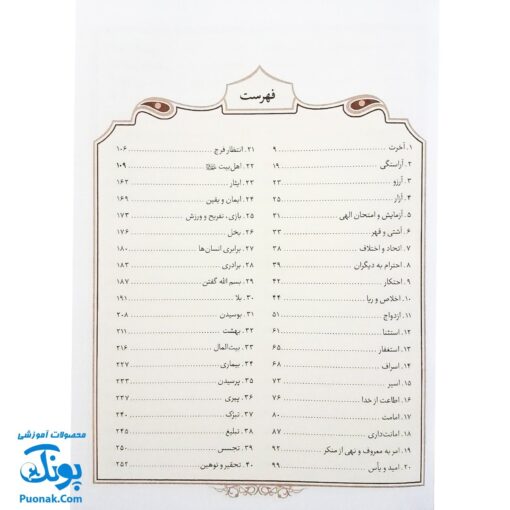 فهرست
۱. آخرت ........ ۹
۲. آراستگی ........ ۱۹
۳. آرزو ........ ۲۳
۴. آزار ........ ۲۵
۵. آزمایش و امتحان الهی ........ ۳۱
۶. آشتی و قهر ........ ۳۳
۷. اتحاد و اختلاف ........ ۳۸
۸. احترام به دیگران ........ ۳۹
۹. احتکار ........ ۴۲
۱۰. اخلاص و ریا ........ ۴۴
۱۱. ازدواج ........ ۵۱
۱۲. استثنا ........ ۶۱
۱۳. استغفار ........ ۶۵
۱۴. اسراف ........ ۶۸
۱۵. اسیر ........ ۷۳
۱۶. اطاعت از خدا ........ ۷۶
۱۷. امامت ........ ۸۰
۱۸. امانت‌داری ........ ۸۷
۱۹. امر به معروف و نهی از منکر ........ ۹۲
۲۰. امید و یأس ........ ۹۹
۲۱. انتظار فرج ........ ۱۰۶
۲۲. اهل بیت ........ ۱۰۹
۲۳. ایثار ........ ۱۶۲
۲۴. ایمان و یقین ........ ۱۶۹
۲۵. بازی، تفریح و ورزش ........ ۱۷۳
۲۶. بخل ........ ۱۷۶
۲۷. برابری انسان‌ها ........ ۱۸۰
۲۸. برادری ........ ۱۸۳
۲۹. بسم الله گفتن ........ ۱۸۷
۳۰. بلا ........ ۱۹۱
۳۱. بوسیدن ........ ۲۰۸
۳۲. بهشت ........ ۲۱۱
۳۳. بیت‌المال ........ ۲۱۶
۳۴. بیماری ........ ۲۲۷
۳۵. پرسیدن ........ ۲۳۳
۳۶. پیری ........ ۲۳۷
۳۷. تبرّک ........ ۲۴۰
۳۸. تبلیغ ........ ۲۴۵
۳۹. تجسس ........ ۲۵۰
۴۰. تحقیر و توهین ........ ۲۵۲
محصولات آموزشی
پونک
Puonak.Com